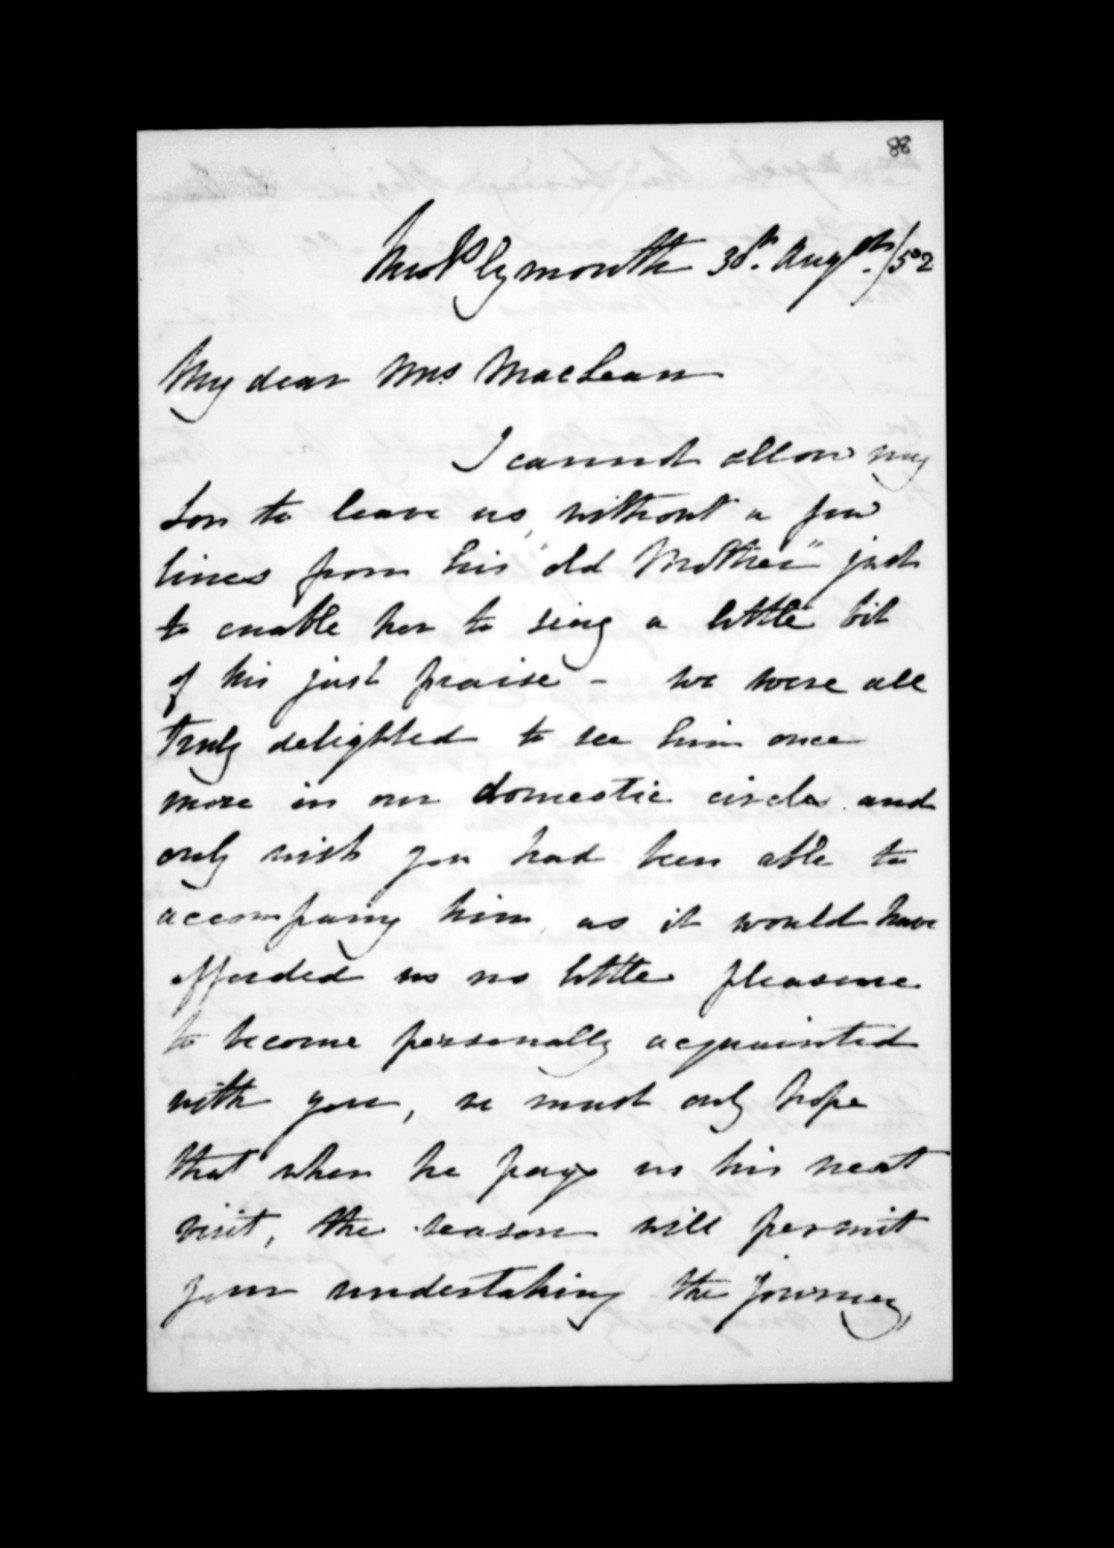 88
New Plymouth 30th. Augst./52
My dear Mrs MacLean
I cannot allow my
Son to leave us, without a few
lines from his "old Mother" just
to enable her to sing a little bit
of his just praise - we were all
truly delighted to see him once
more in our domestic circle and
only wish you had been able to
accompany him, as it would have
afforded us no little pleasure
to become personally acquainted
with you, we must only hope
that when he pays us his next
visit, the season will permit
your undertaking the journey